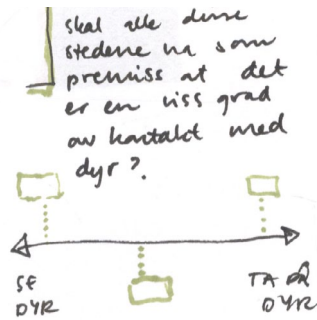 skal alle disse
stedene ha som
premiss at det
er en viss grad
av kontakt med
dyr?.
SE
DYR
TA PÅ
DYR